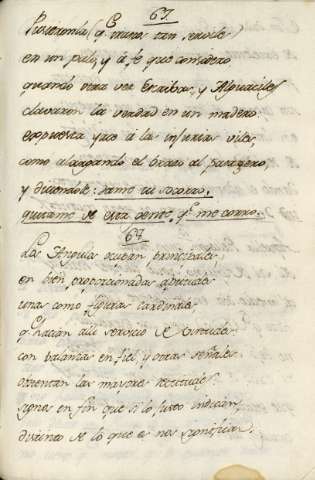 63.
en un palo, y à fe que considero
quando vera ver Escribas, y Alguaciles
clavaron la verdad en un madero:
expuesta yace à las injurias viles,
como alargando el brazo al pasagero,
y diciendole: dame tu socorro,
quitame de esta
67
Los Angulos ocupan principales,
en bien proporcionadas
unas como figuras cardinales
q. hacian alli servicio de virtudes:
con balanzas en fiel, y otras señales.
obstentan las mayores rectitudes:
signos en fin que si lo justo indican,
distinto de lo que es nos significan.